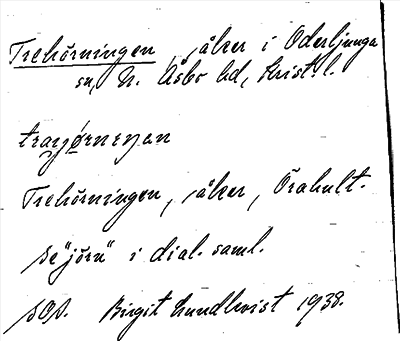 Trehörningen, åker i Oderljunga
sn, N. Åsbo hd, Krist. l.
Trehörningen, åker, Örahult.
se "jörn" i dial. saml.
SOA. Birgit Lundkvist 1938.